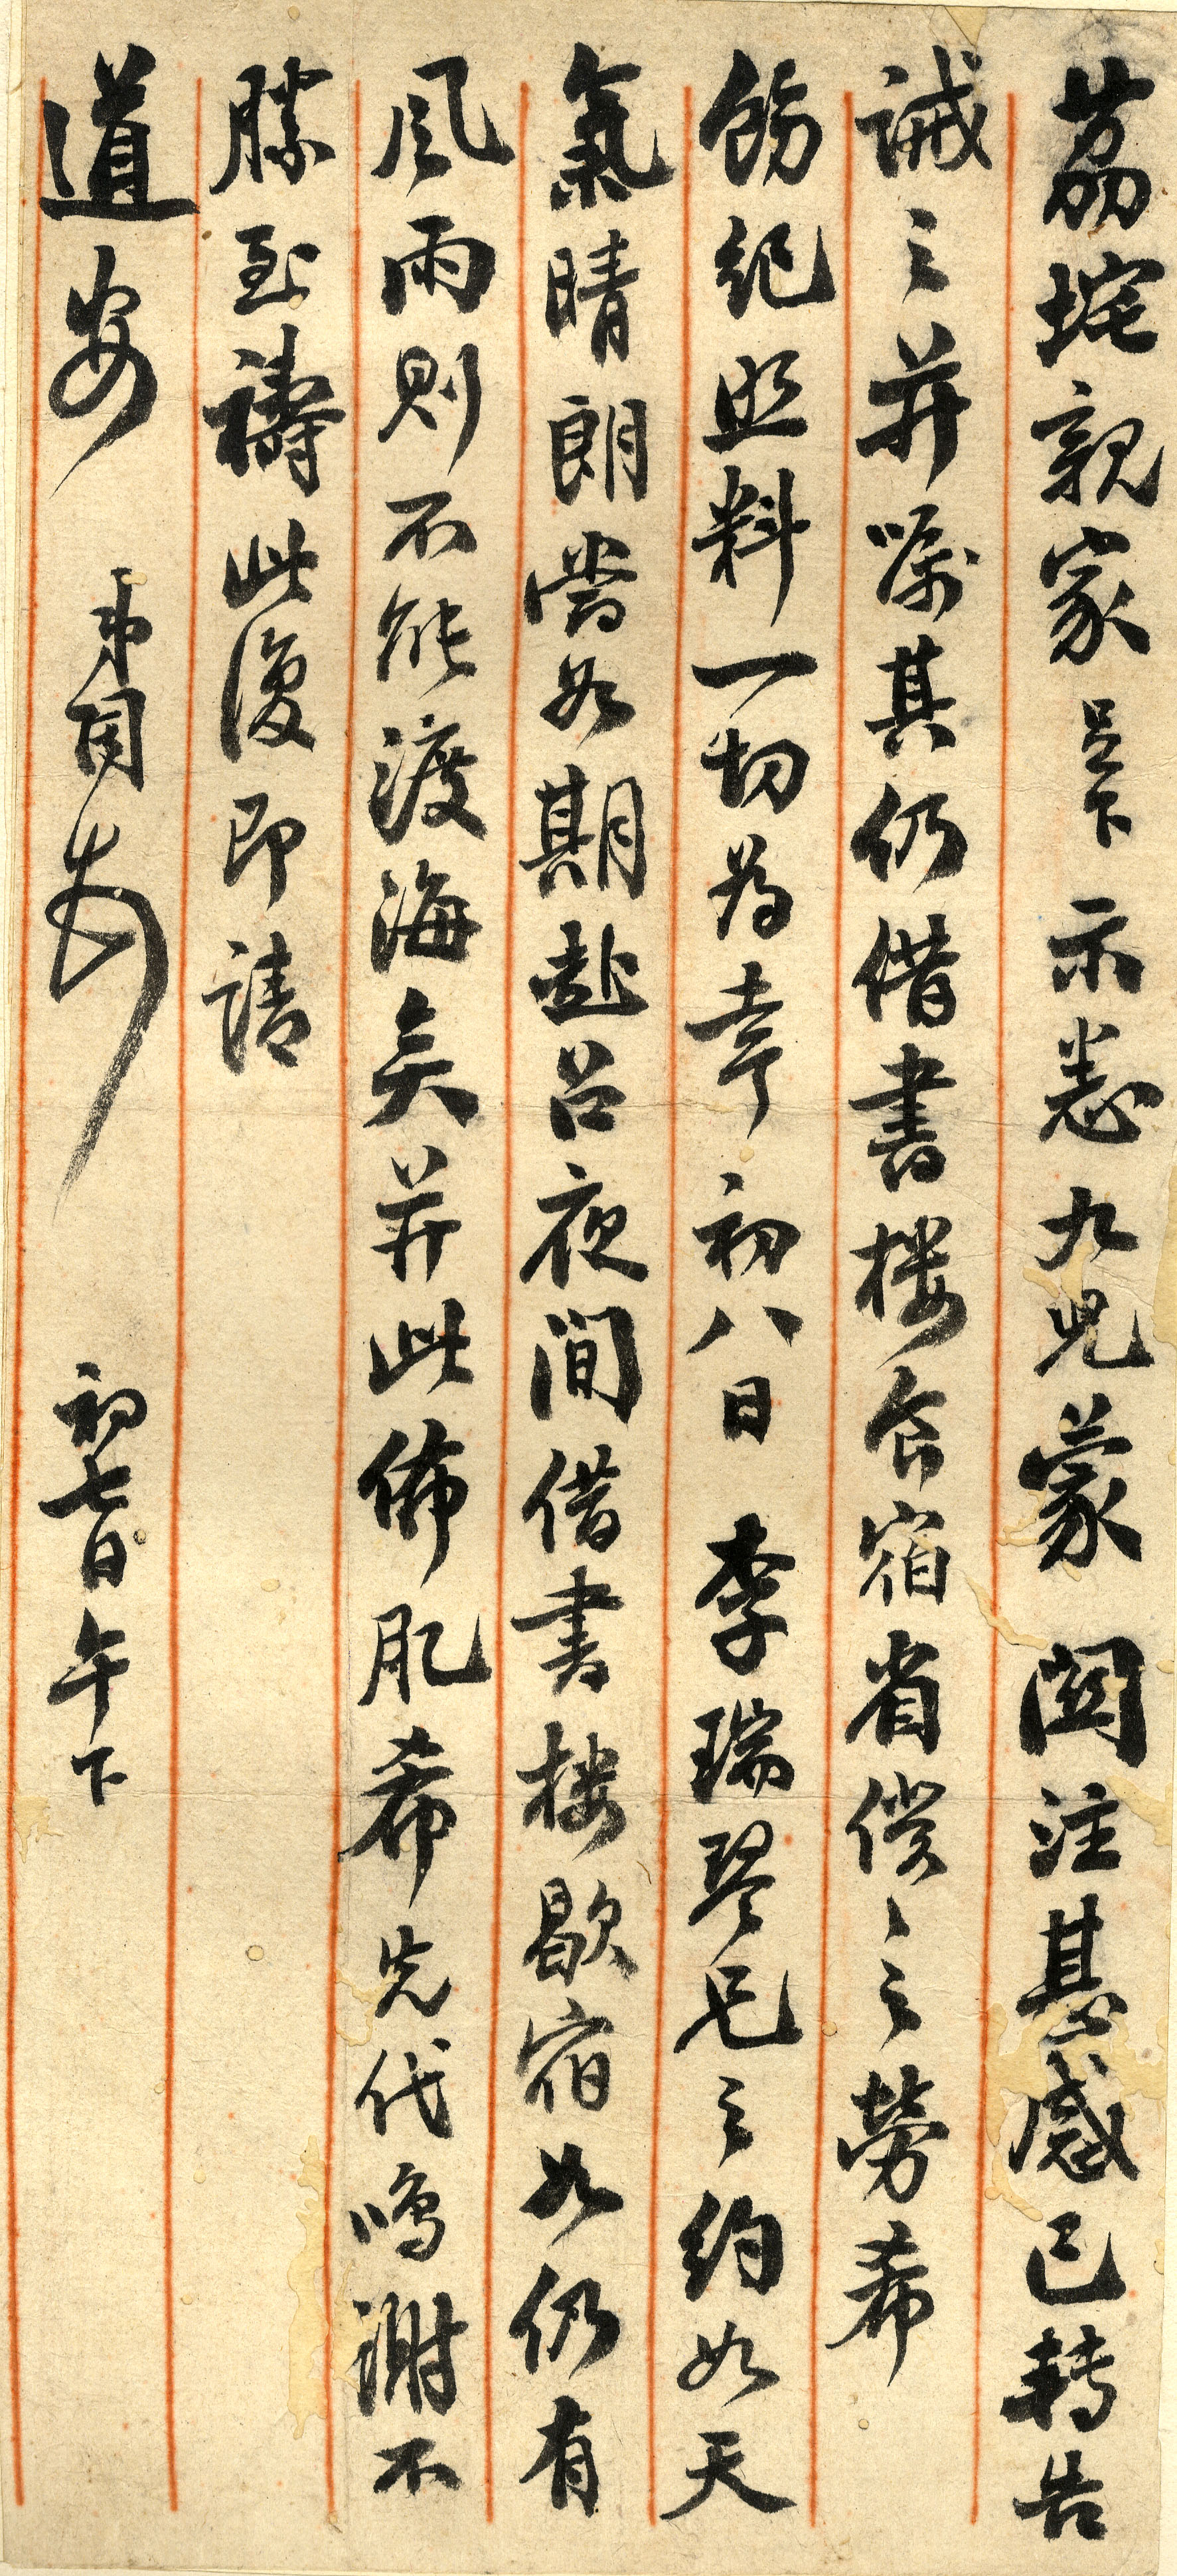 荔垞親家足下示悉九兒蒙關注甚感已轉告
誡之并囑其仍借書樓食宿省僕僕之勞希
飭紀照料一切為幸初八日李瑞琴兄之約如天
氣晴朗當如期赴呂夜間借書樓歇宿如仍有
風雨則不能渡海矣并此佈肊希先代鳴謝不
勝至禱此復即請
道安 弟 初七日午下